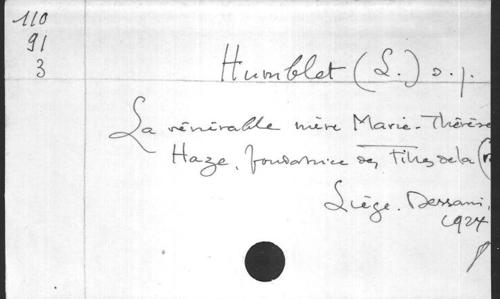 110
91
3
Humblet (L.) s. j.
La vénérable mère Marie-Thérèse
Haze, fondatrice des Filles de la
Liège. Dessain,
1924